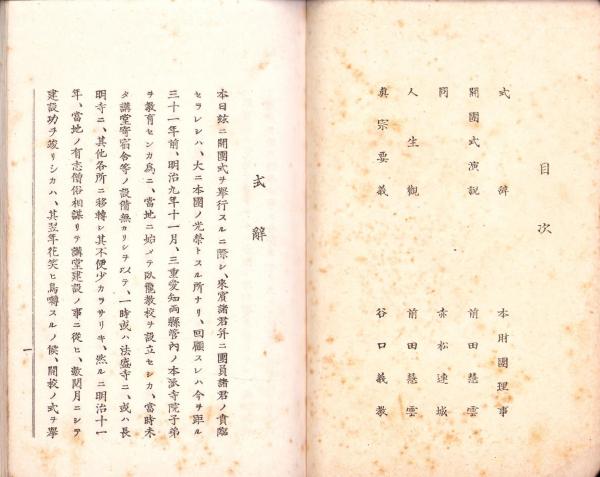 目次
式辭 本財團理事
開團式演說 前田慧雲
同 赤松連城
人生觀 前田慧雲
眞宗要義 谷口義敎
式辭
本日玆ニ開團式ヲ舉行スルニ際シ、來賓諸君幷ニ團員諸君ノ貴臨
セラレシハ、大ニ本團ノ光榮トスル所ナリ、回顧スレハ今ヲ距ル
三十一年前、明治九年十一月、三重愛知兩縣管內ノ本派寺院子弟
ヲ敎育センカ爲ニ、當地ニ始メテ臥龍敎校ヲ設立セシカ、當時未
タ講堂寄宿舍等ノ設備無カリシヲ以テ、一時或ハ法盛寺ニ、或ハ長
明寺ニ、其他各所ニ移轉シ其不便少カラサリキ、然ルニ明治十一
年、當地ノ有志僧俗相謀リテ講堂建設ノ事ニ從ヒ、數閱月ニシテ
建設功ヲ竣リシカハ、其翌年花笑ヒ鳥囀スルノ候、開校ノ式ヲ擧
一